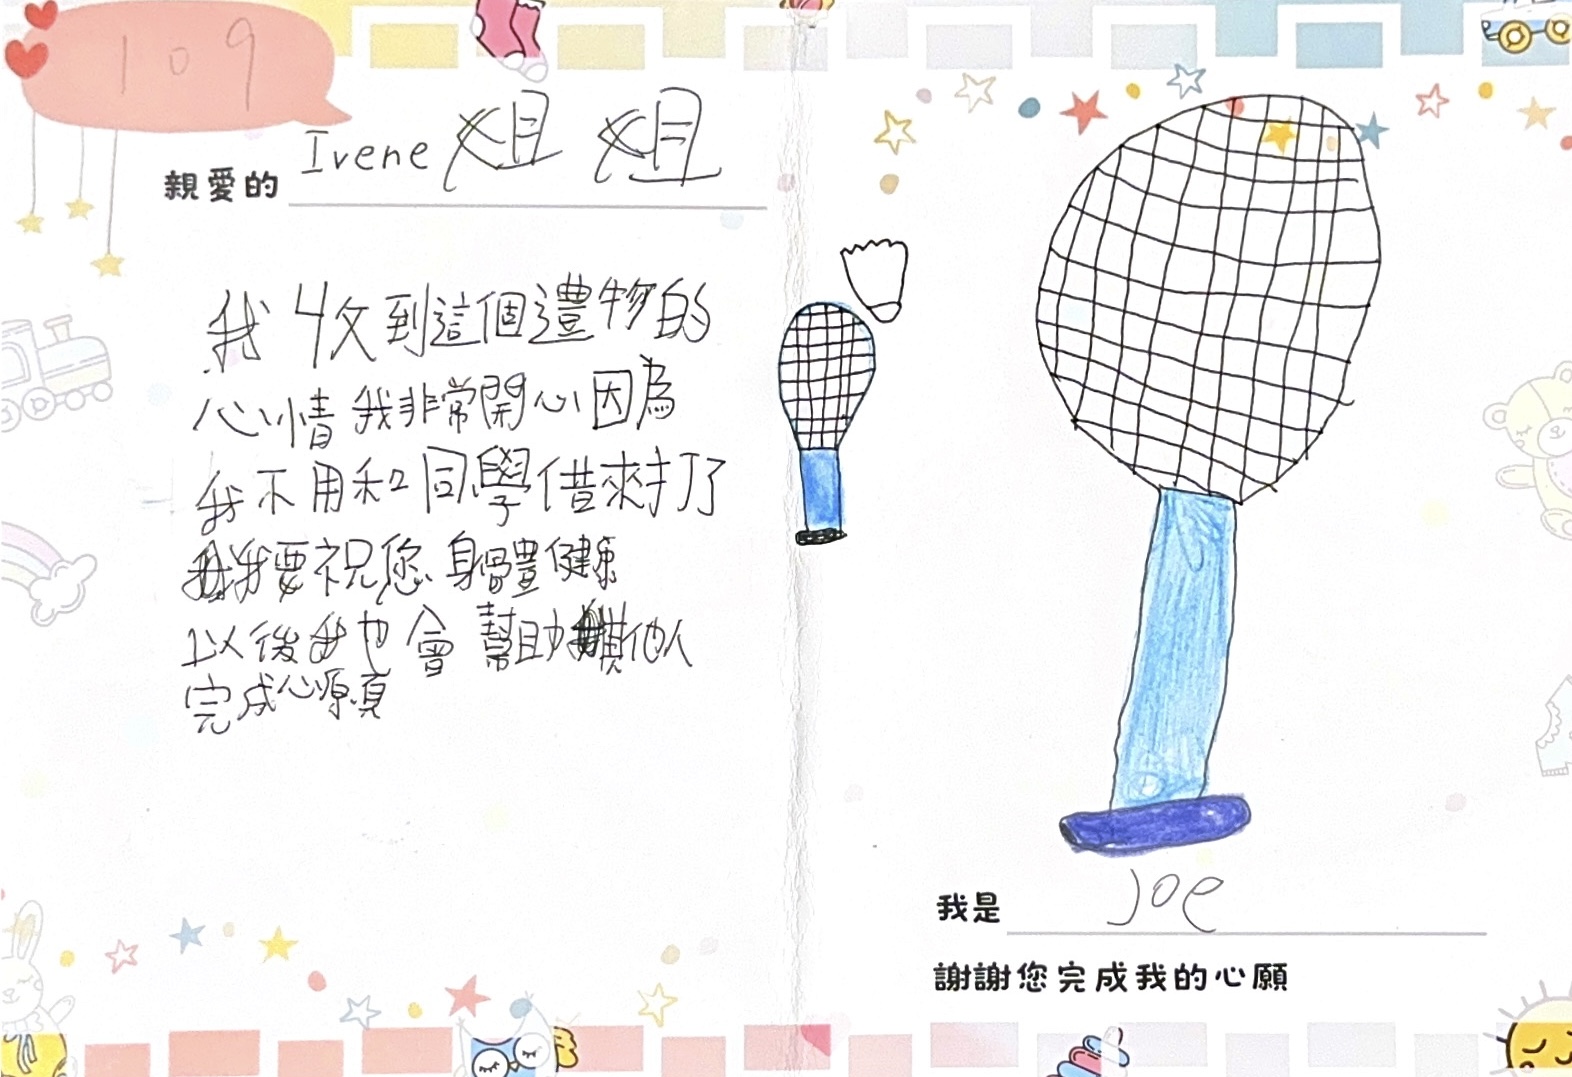 109
親愛的 Irene姐姐
我收到這個禮物的
心情我非常開心因為
我不用和同學借來打了
我要祝您身體健康
以後我也會幫助其他人
完成心願
我是 Joe
謝謝您完成我的心願